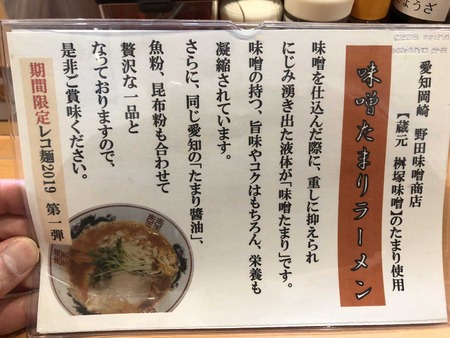 愛知岡崎 野田味噌商店
【蔵元 桝塚味噌】のたまり使用
味噌たまりラーメン
味噌を仕込んだ際に、重しに抑えられ
にじみ湧き出た液体が「味噌たまり」です。
味噌の持つ、旨味やコクはもちろん、栄養も
凝縮されています。
さらに、同じ愛知の「たまり醤油」、
魚粉、昆布粉も合わせて
贅沢な一品と
なっておりますので、
是非ご賞味ください。
期間限定レコ麺2019 第一弾
ようざ